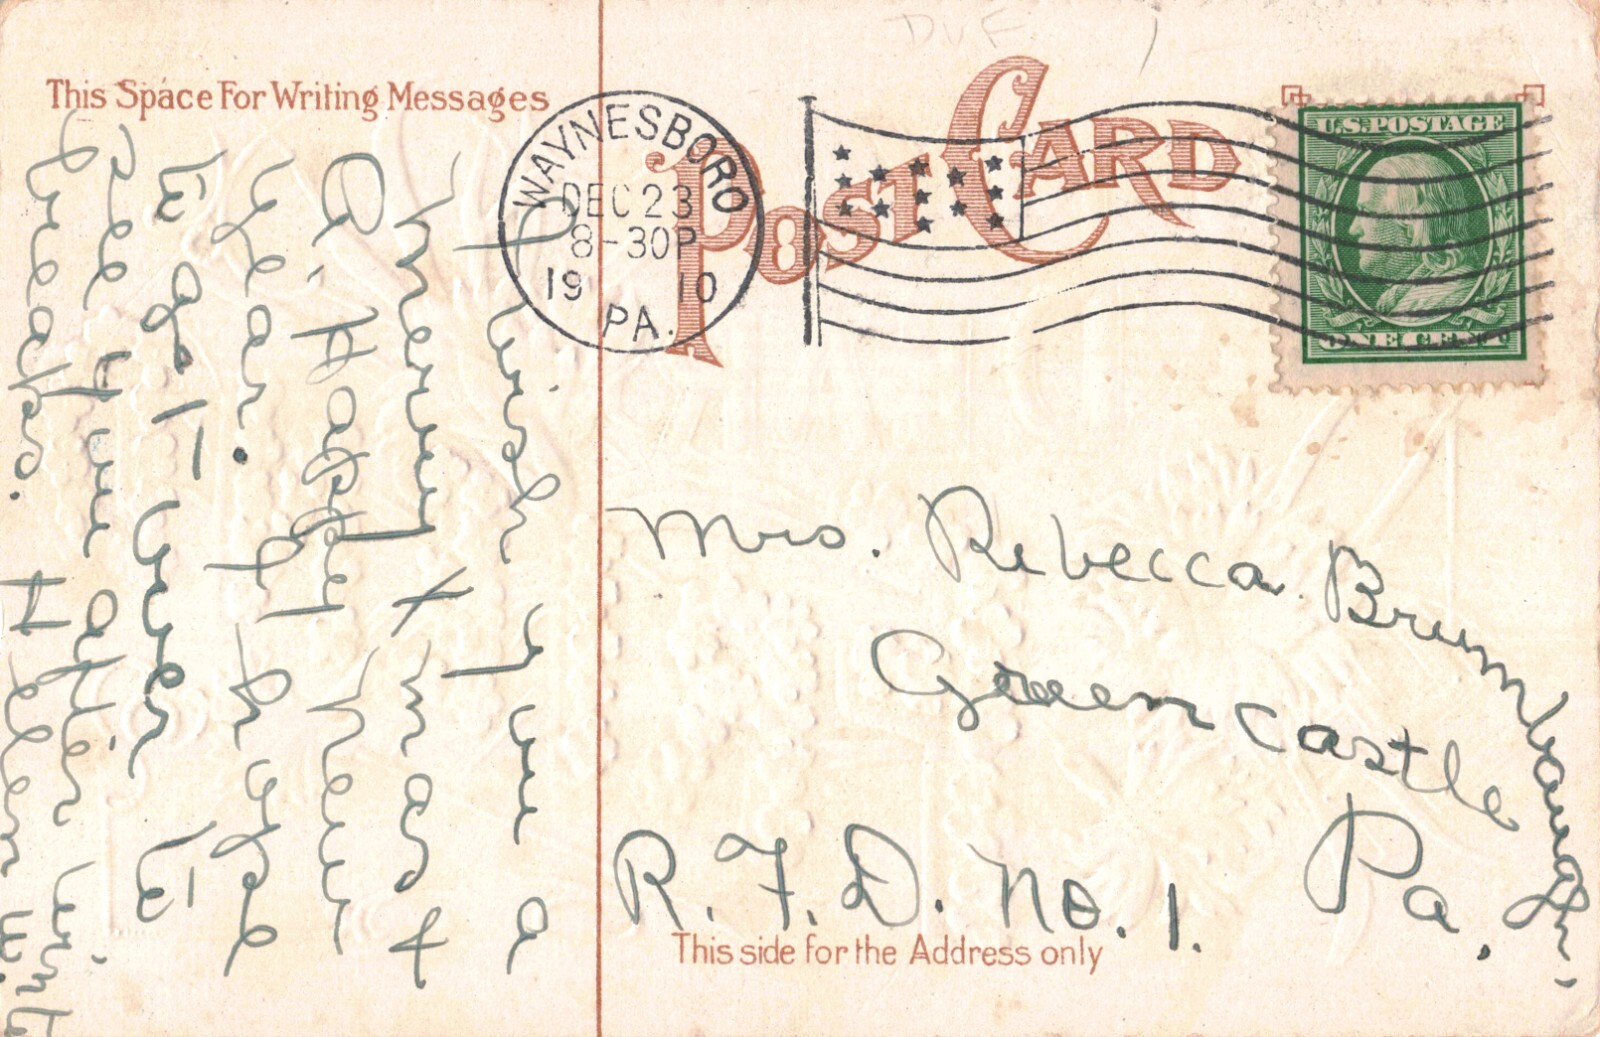 DUE 1
This Space For Writing Messages
POST CARD
WAYNESBORO
DEC 23
8-30P
1910
PA.
U.S. POSTAGE
ONE CENT
I wish you a
merry Xmas +
A Happy new
Year. I hope
to get over to
see you after winter
breaks. Helen W.
Mrs. Rebecca Brumbaugh,
Greencastle
Pa.
R.F.D. No. 1.
This side for the Address only